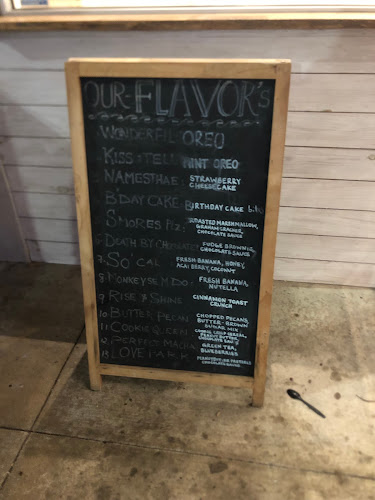 OUR-FLAVOR's
WONDERFUL OREO
KISS & TELL MINT OREO
NAMESTHAE: STRAWBERRY
CHEESECAKE
B'DAY CAKE BIRTHDAY CAKE
S'MORES PLZ: TOASTED MARSHMALLOW,
GRAHAM CRACKER,
CHOCOLATE SAUCE
DEATH BY FUDGE BROWNIE,
CHOCOLATE SAUCE
7. SO' CAL FRESH BANANA, HONEY,
ACAI BERRY, COCONUT
8. FRESH BANANA,
NUTELLA
9 RISE N SHINE CINNAMON TOAST
CRUNCH
10 BUTTER PECAN CHOPPED PECANS,
BUTTER-BROWN
SUGAR MIX
11 COOKIE COOKIE CRISP CEREAL,
PEANUT BUTTER,
CHOCOLATE SAUCE
12. PERFECT GREEN TEA,
BLUEBERRIES
13. PRETZELS
CHOCOLATE SAUCE